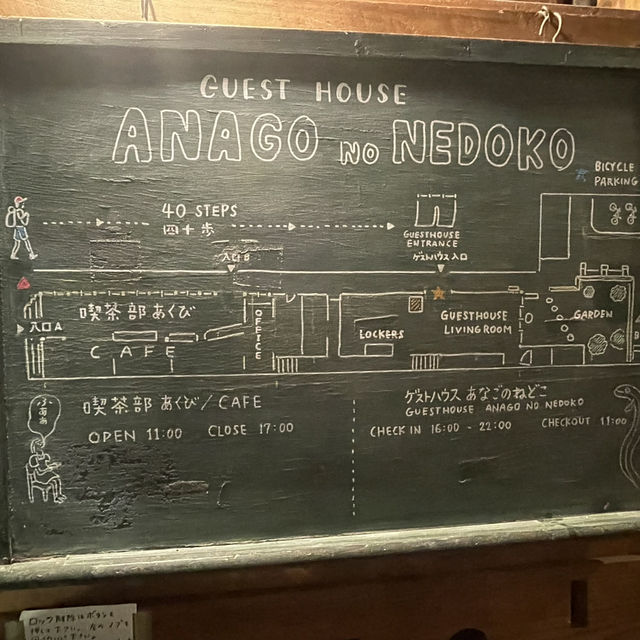 GUEST HOUSE
ANAGO NO NEDOKO
BICYCLE
PARKING
40 STEPS
四十歩
GUESTHOUSE
ENTRANCE
ゲストハウス 入口
入口B
入口A
喫茶部 あくび
CAFE
OFFICE
LOCKERS
GUESTHOUSE
LIVING ROOM
GARDEN
喫茶部 あくび/CAFE
OPEN 11:00 CLOSE 17:00
ゲストハウス あなごのねどこ
GUESTHOUSE ANAGO NO NEDOKO
CHECK IN 16:00 - 22:00 CHECKOUT 11:00
ふぁぁ
ロック解除はボタンを
押して下さい。左のノブを